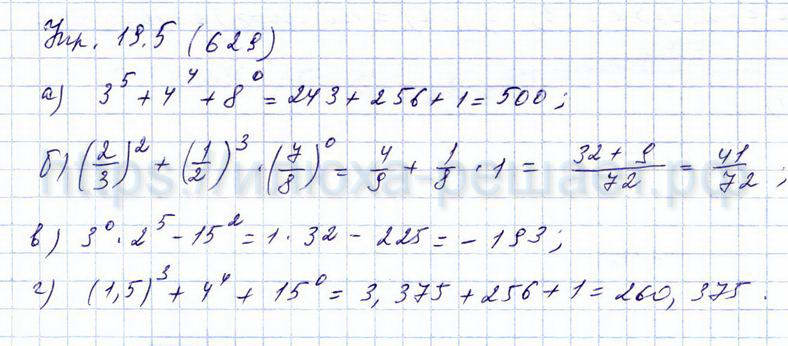 Упр. 19.5 (629)
а) 3⁵ + 4⁴ + 8⁰ = 243 + 256 + 1 = 500;
б) (2/3)² + (1/2)³ · (7/8)⁰ = 4/9 + 1/8 · 1 = (32 + 9)/72 = 41/72;
в) 3⁰ · 2⁵ - 15² = 1 · 32 - 225 = - 193;
г) (1,5)³ + 4⁴ + 15⁰ = 3,375 + 256 + 1 = 260,375.